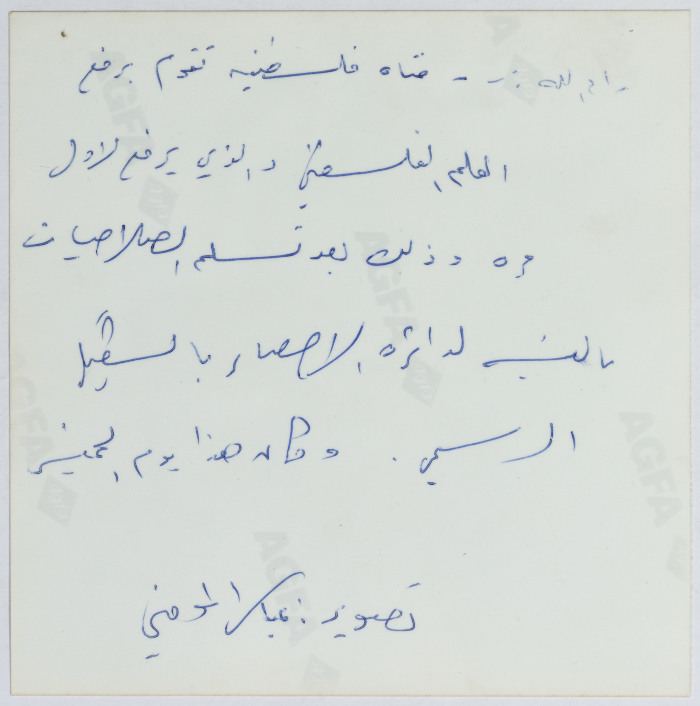 رام الله - فتاه فلسطينيه تقوم برفع
العلم الفلسطيني والذي يرفع لاول
مره وذلك بعد تسلم الصلاحيات
بالنسبه لدائره الاحصاء بالشكل
الرسمي . وكان هذا يوم الخميس
تصوير : المومني
AGFA
AGFA
AGFA
AGFA
AGFA